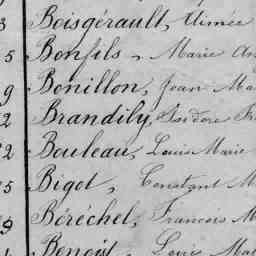 3 Boisgérault, Aimée
5 Bonfils, Marie An
9 Bonillon, Jean Ma
2 Brandily, Isidore Fr
2 Bouleau, Louis Marie
5 Bigot, Constant M
9 Béréchel, François M
Benoist, Louis Ma